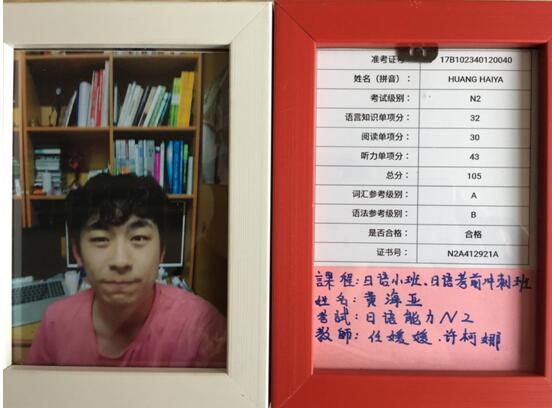 准考证号: 17B102340120040
姓名（拼音）: HUANG HAIYA
考试级别: N2
语言知识单项分: 32
阅读单项分: 30
听力单项分: 43
总分: 105
词汇参考级别: A
语法参考级别: B
是否合格: 合格
证书号: N2A412921A
課程:日语小班、日语考前冲刺班
姓名:黄海亚
考試:日语能力N2
教師:任媛媛、许柯娜